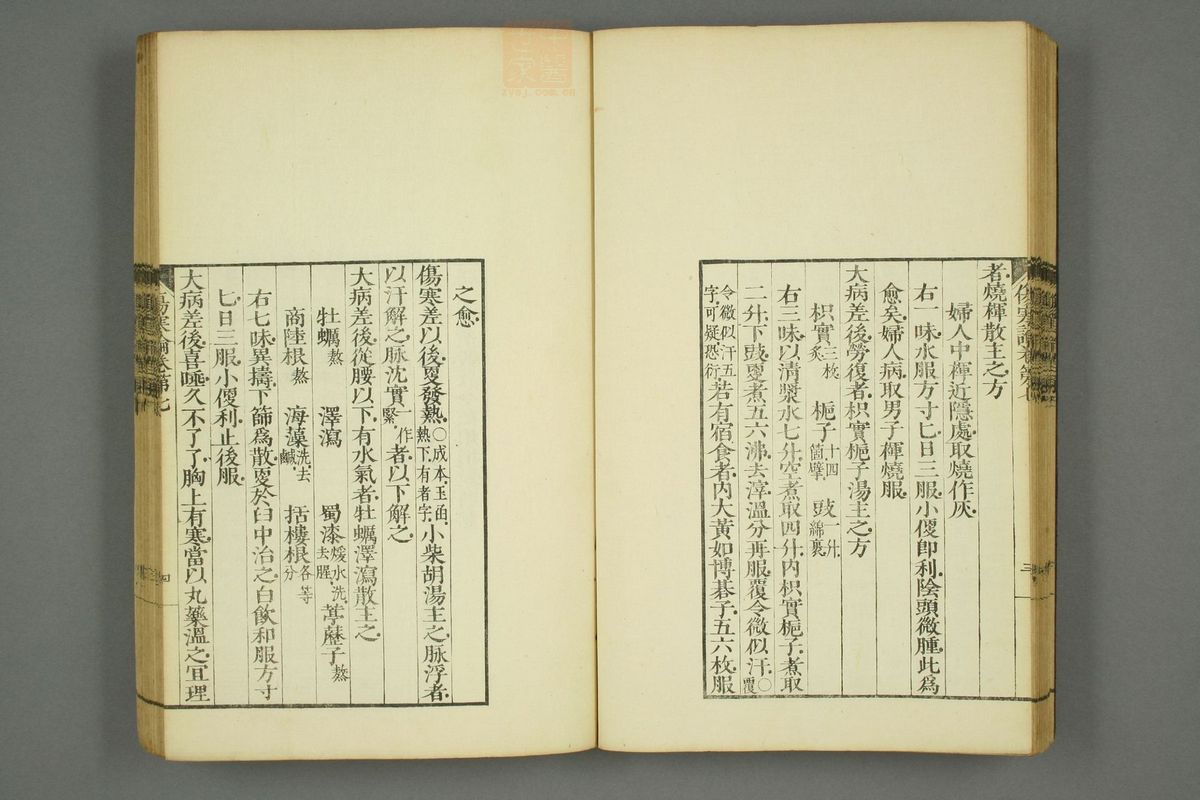 者燒褌散主之方
婦人中褌近隱處取燒作灰
右一味水服方寸匕日三服小便卽利陰頭微腫此爲
愈矣婦人病取男子褌燒服
大病差後勞復者枳實梔子湯主之方
枳實三枚炙 梔子十四箇擘 豉一升綿裹
右三味以淸漿水七升空煮取四升內枳實梔子煮取
二升下豉更煮五六沸去滓溫分再服覆令微似汗○覆
令微似汗五字可疑恐衍若有宿食者內大黃如博碁子五六枚服
之愈
傷寒差以後更發熱○成本玉函熱下有者字小柴胡湯主之脈浮者
以汗解之脈沈實一作緊者以下解之
大病差後從腰以下有水氣者牡蠣澤瀉散主之
牡蠣熬 澤瀉 蜀漆煖水洗去腥 葶藶子熬
商陸根熬 海藻洗去鹹 括樓根各等分
右七味異擣下篩爲散更於臼中治之白飮和服方寸
匕日三服小便利止後服
大病差後喜唾久不了了胸上有寒當以丸藥溫之宜理
傷寒論卷第七
zysj.com.cn